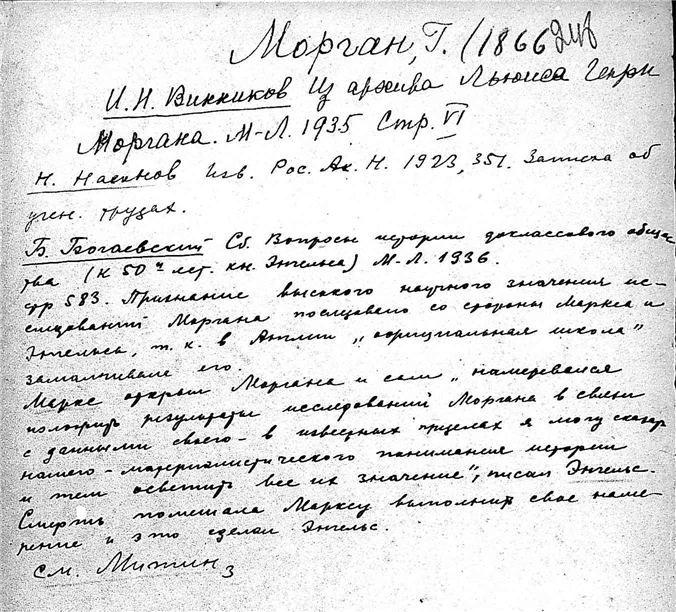 Морган, Г. (1866
И. Н. Винников Из архива Льюиса Генри
Моргана. М-Л. 1935 Стр. VI
Н. Насонов Изв. Рос. Ак. Н. 1923, 351. Записка об
учен. трудах.
Б. Богаевский Сб. Вопросы истории доклассового общес
тва (К 50-лет. кн. Энгельса) М-Л. 1936.
стр 583. Признание высокого научного значения ис-
следований Моргана последовало со стороны Маркса и
Энгельса, т. к. в Англии „официальная школа"
замалчивала его.
Маркс открыл Моргана и сам „намеревался
изложить результаты исследований Моргана в связи
с данными своего - в известных пределах я могу сказать
нашего - материалистического понимания истории
и тем осветить все их значение", писал Энгельс.
Смерть помешала Марксу выполнить свое наме-
рение и это сделал Энгельс.
См. Митин